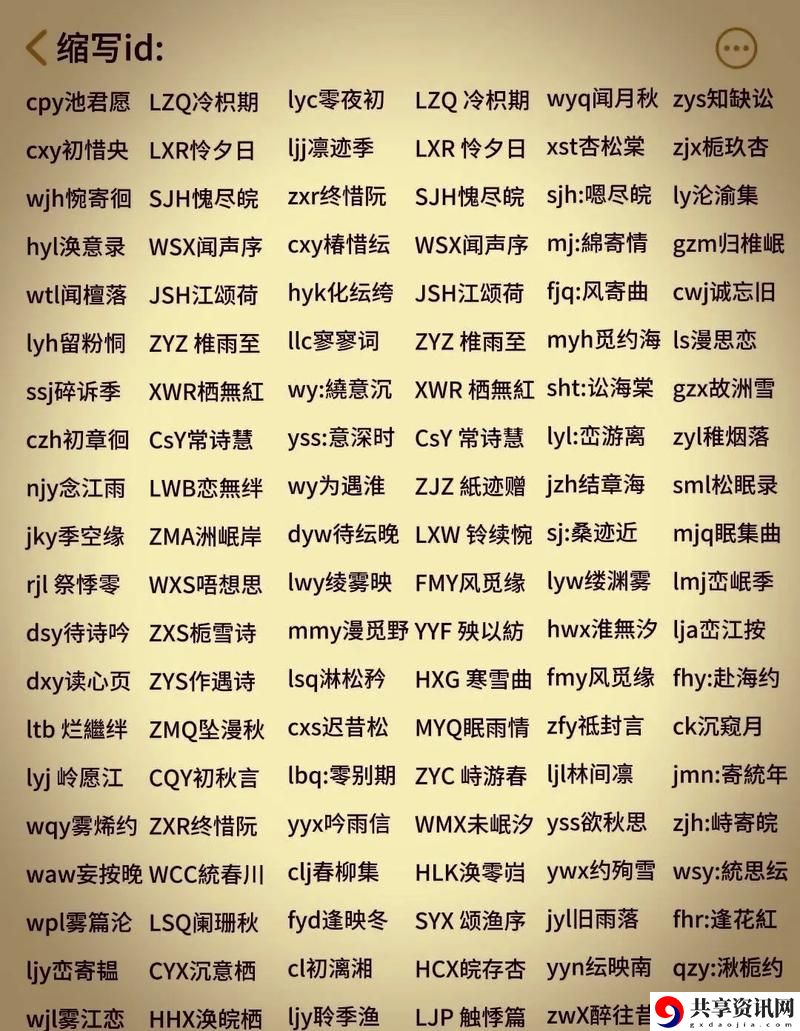 缩写id:
cpy池君愿 LZQ冷枳期 lyc零夜初 LZQ 冷枳期 wyq闻月秋 zys知缺讼
cxy初惜央 LXR怜夕日 ljj凛迹季 LXR 怜夕日 xst杏松棠 zjx栀玖杏
wjh惋寄徊 SJH愧尽皖 zxr终惜阮 SJH愧尽皖 sjh:嗯尽皖 ly沦渝集
hyl涣意录 WSX闻声序 cxy椿惜纭 WSX闻声序 mj:綿寄情 gzm归椎岷
wtl闻檀落 JSH江颂荷 hyk化纭绔 JSH江颂荷 fjq:风寄曲 cwj诚忘旧
lyh留粉恫 ZYZ 椎雨至 llc寥寥词 ZYZ 椎雨至 myh觅约海 ls漫思恋
ssj碎诉季 XWR栖無紅 wy:繞意沉 XWR 栖無紅 sht:讼海棠 gzx故洲雪
czh初章徊 CsY常诗慧 yss:意深时 CsY 常诗慧 lyl:峦游离 zyl稚烟落
njy念江雨 LWB恋無绊 wy为遇淮 ZJZ 紙迹赠 jzh结章海 sml松眠录
jky季空缘 ZMA洲岷岸 dyw待纭晚 LXW 铃续惋 sj:桑迹近 mjq眠集曲
rjl 祭悸零 WXS唔想思 lwy绫雾映 FMY风觅缘 lyw缕渊雾 lmj峦岷季
dsy待诗吟 ZXS栀雪诗 mmy漫觅野 YYF 殃以紡 hwx淮無汐 lja峦江按
dxy读心页 ZYS作遇诗 lsq淋松矜 HXG 寒雪曲 fmy风觅缘 fhy:赴海约
ltb 烂繼绊 ZMQ坠漫秋 cxs迟昔松 MYQ眠雨情 zfy祗封言 ck沉窥月
lyj 岭愿江 CQY初秋言 lbq:零别期 ZYC 峙游春 ljl林间凛 jmn:寄統年
wqy雾烯约 ZXR终惜阮 yyx吟雨信 WMX未岷汐 yss欲秋思 zjh:峙寄皖
waw妄按晚 WCC統春川 clj春柳集 HLK涣零岿 ywx约殉雪 wsy:統思纭
wpl雾篇沦 LSQ阑珊秋 fyd逢映冬 SYX 颂渔序 jyl旧雨落 fhr:逢花紅
ljy峦寄韫 CYX沉意栖 cl初漓湘 HCX皖存杏 yyn纭映南 qzy:湫栀约
wjl雾江恋 HHX涣皖栖 ljy聆季渔 LJP 触悸篇 zwX醉往昔
共享资讯网
gxdaojia.com